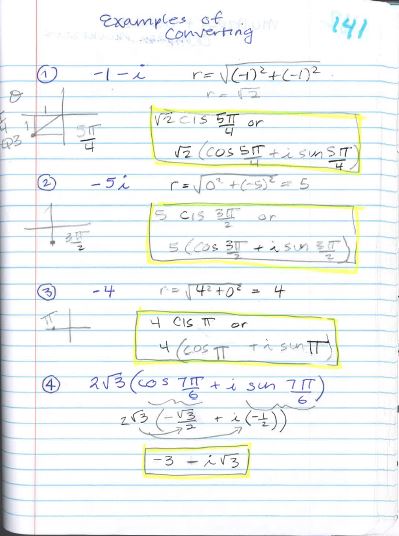 Examples of
Converting
141
① -1-i r=√(-1)²+(-1)²
r=√2
θ
1
1
5π/4
QP3
√2 cis 5π/4 or
√2 (cos 5π/4 + i sin 5π/4)
② -5i r=√0²+(-5)² = 5
3π/2
5 cis 3π/2 or
5 (cos 3π/2 + i sin 3π/2)
③ -4 r=√4²+0² = 4
π
4 cis π or
4 (cos π + i sin π)
④ 2√3 (cos 7π/6 + i sin 7π/6)
2√3 (-√3/2 + i (-1/2))
-3 - i√3